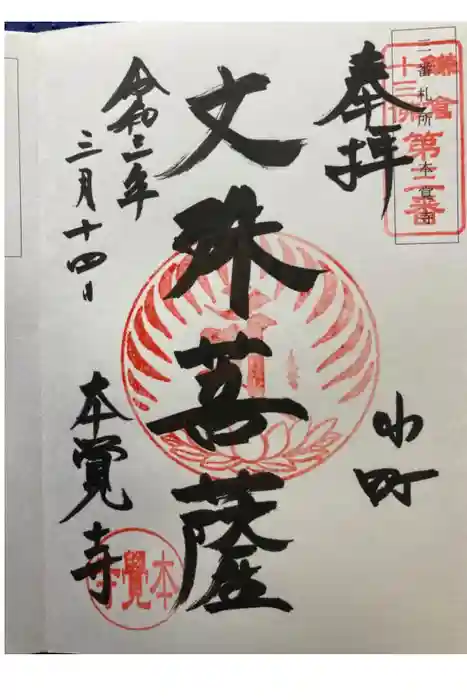 三番札所 本覚寺
鎌倉
十三佛
第三番
奉拝
小町
文殊菩薩
令和三年
三月十四日
本覺寺
本覺寺